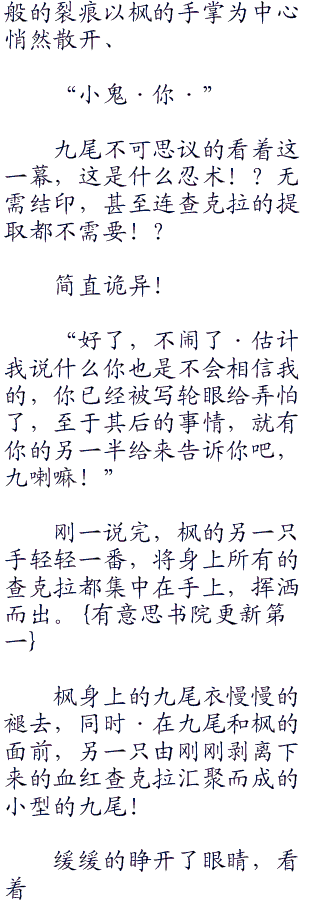 般的裂痕以枫的手掌为中心
悄然散开、
“小鬼·你·”
九尾不可思议的看着这
一幕，这是什么忍术！？无
需结印，甚至连查克拉的提
取都不需要！？
简直诡异！
“好了，不闹了·估计
我说什么你也是不会相信我
的，你已经被写轮眼给弄怕
了，至于其后的事情，就有
你的另一半给来告诉你吧，
九喇嘛！”
刚一说完，枫的另一只
手轻轻一番，将身上所有的
查克拉都集中在手上，挥洒
而出。{有意思书院更新第
一}
枫身上的九尾衣慢慢的
褪去，同时·在九尾和枫的
面前，另一只由刚刚剥离下
来的血红查克拉汇聚而成的
小型的九尾！
缓缓的睁开了眼睛，看
着